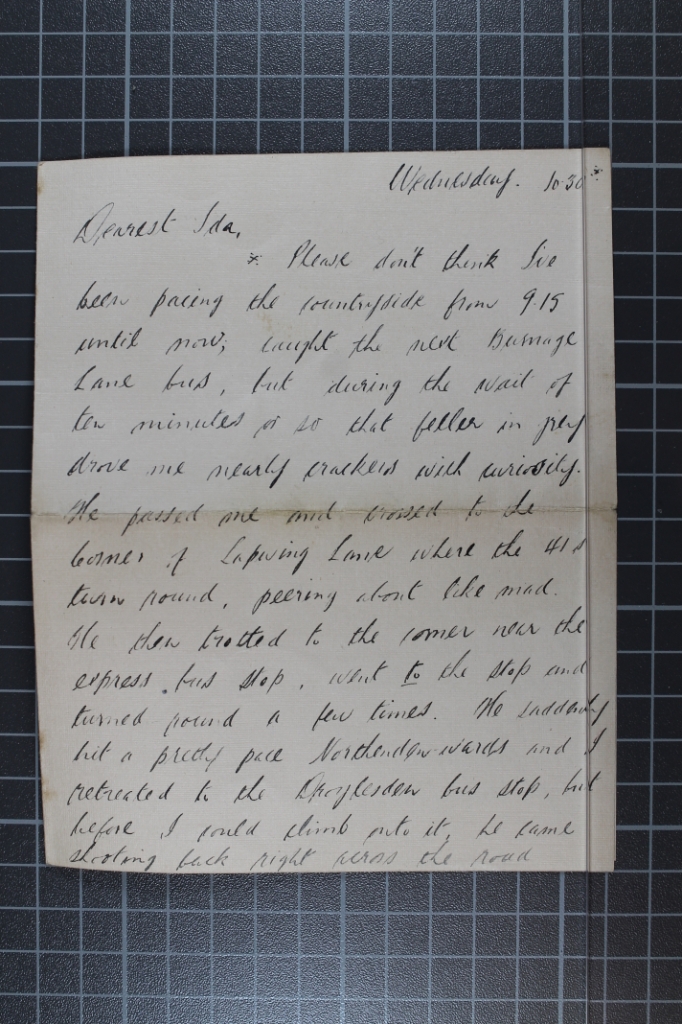 Wednesday. 10-30
Dearest Ida,
Please don't think I've
been pacing the countryside from 9.15
until now; caught the next Burnage
Lane bus, but during the wait of
ten minutes or so that feller in grey
drove me nearly crackers with curiosity.
He passed me and crossed to the
corner of Lapwing Lane where the 41s
turn round, peering about like mad.
He then trotted to the corner near the
express bus stop, went to the stop and
turned round a few times. He suddenly
hit a pretty pace Northenden-wards and I
retreated to the Droylesden bus stop, but
before I could climb onto it, he came
shooting back right across the road